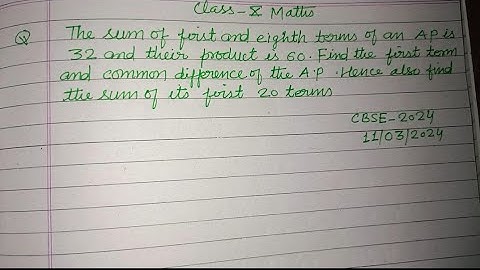 Class-X Maths
Q The sum of first and eighth terms of an AP is
32 and their product is 60. Find the first term
and common difference of the A.P. Hence also find
the sum of its first 20 terms
CBSE-2024
11/03/2024